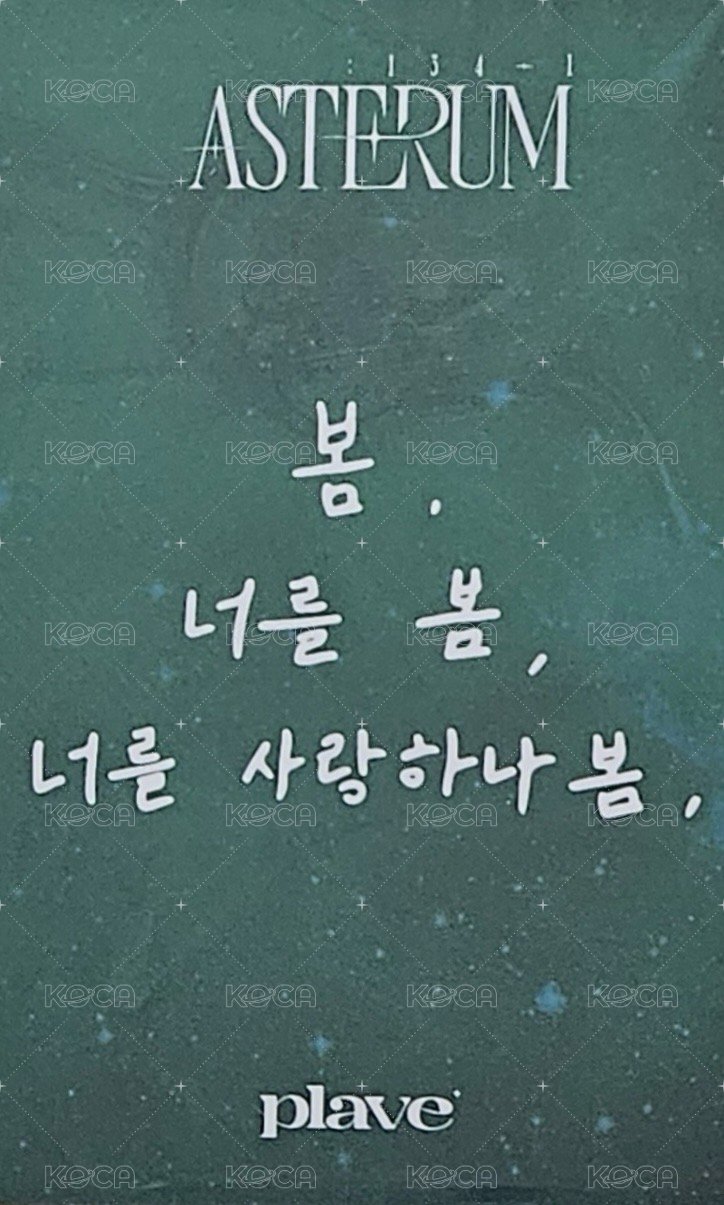 :134-1
ASTERUM
봄.
너를 봄,
너를 사랑하나봄,
plave
KOCA